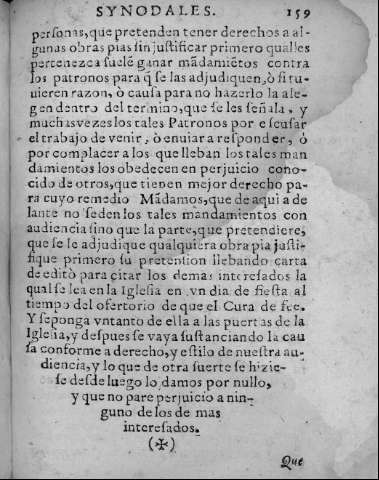 SYNODALES. 159
personas, que pretenden tener derechos a al-
gunas obras pias sin justificar primero qual les
pertenezca suelē ganar mādamiētos contra
los patronos para q̄ se las adjudiquen, ò si tu-
uieren razon, ò causa para no hazerlo la ale-
gen dentro del termino, que se les señala, y
muchas vezes los tales Patronos por escusar
el trabajo de venir, ò enuiar a responder, ò
por complacer a los que lleban los tales man
damientos los obedecen en perjuicio cono-
cido de otros, que tienen mejor derecho pa-
ra cuyo remedio Mādamos, que de aqui a de
lante no se den los tales mandamientos con
audiencia sino que la parte, que pretendiere,
que se le adjudique qualquiera obra pia justi-
fique primero su pretension llebando carta
de editò para citar los demas interesados la
qual se lea en la Iglesia en vn dia de fiesta al
tiempo del ofertorio de que el Cura de fee.
Y se ponga vn tanto de ella a las puertas de la
Iglesia, y despues se vaya sustanciando la cau
sa conforme a derecho, y estilo de nuestra au-
diencia, y lo que de otra suerte se hizie-
se desde luego lo damos por nullo,
y que no pare perjuicio a nin-
guno de los de mas
interesados.
(✠)
Que